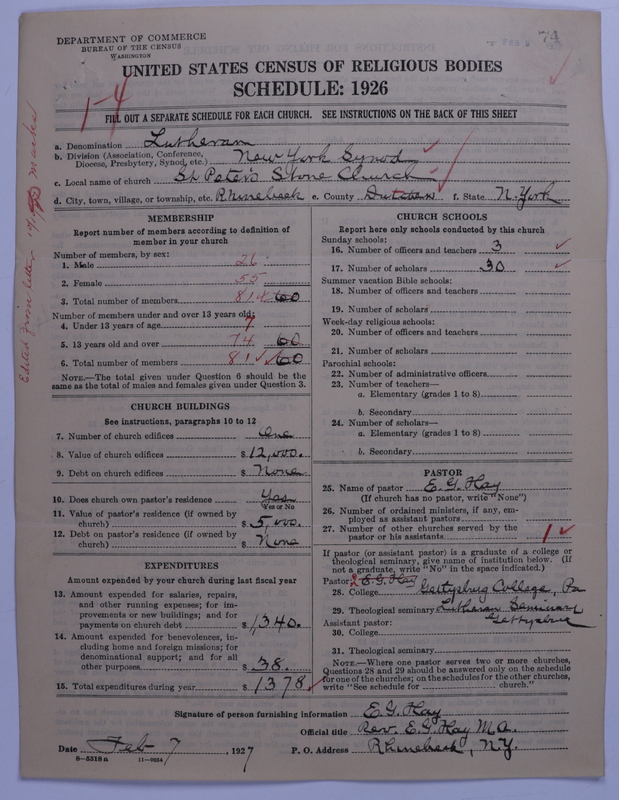 DEPARTMENT OF COMMERCE
BUREAU OF THE CENSUS
WASHINGTON
74
UNITED STATES CENSUS OF RELIGIOUS BODIES
SCHEDULE: 1926
1-4
FILL OUT A SEPARATE SCHEDULE FOR EACH CHURCH. SEE INSTRUCTIONS ON THE BACK OF THIS SHEET
a. Denomination Lutheran
b. Division (Association, Conference, Diocese, Presbytery, Synod, etc.) New York Synod
c. Local name of church St Peter's Stone Church
d. City, town, village, or township, etc. Rhinebeck e. County Dutchess f. State N. York
Edited from letter
MEMBERSHIP
Report number of members according to definition of
member in your church
Number of members, by sex:
1. Male 26
2. Female 55
3. Total number of members 81 60
Number of members under and over 13 years old:
4. Under 13 years of age 7
5. 13 years old and over 74 60
6. Total number of members 81 60
NOTE.—The total given under Question 6 should be the
same as the total of males and females given under Question 3.
CHURCH BUILDINGS
See instructions, paragraphs 10 to 12
7. Number of church edifices One
8. Value of church edifices $ 12,000.
9. Debt on church edifices $ None
10. Does church own pastor's residence Yes
Yes or No
11. Value of pastor's residence (if owned by
church) $ 5,000.
12. Debt on pastor's residence (if owned by
church) $ None
EXPENDITURES
Amount expended by your church during last fiscal year
13. Amount expended for salaries, repairs,
and other running expenses; for im-
provements or new buildings; and for
payments on church debt $ 1,340.
14. Amount expended for benevolences, in-
cluding home and foreign missions; for
denominational support; and for all
other purposes $ 38.
15. Total expenditures during year $ 1378.
CHURCH SCHOOLS
Report here only schools conducted by this church
Sunday schools:
16. Number of officers and teachers 3
17. Number of scholars 30
Summer vacation Bible schools:
18. Number of officers and teachers
19. Number of scholars
Week-day religious schools:
20. Number of officers and teachers
21. Number of scholars
Parochial schools:
22. Number of administrative officers
23. Number of teachers—
a. Elementary (grades 1 to 8)
b. Secondary
24. Number of scholars—
a. Elementary (grades 1 to 8)
b. Secondary
PASTOR
25. Name of pastor E. G. Hay
(If church has no pastor, write "None")
26. Number of ordained ministers, if any, em-
ployed as assistant pastors
27. Number of other churches served by the
pastor or his assistants 1
If pastor (or assistant pastor) is a graduate of a college or
theological seminary, give name of institution below. (If
not a graduate, write "No" in the space indicated.)
Pastor: 2 E. G. Hay
28. College Gettysburg College, Pa
29. Theological seminary Lutheran Seminary
Gettysburg
Assistant pastor:
30. College
31. Theological seminary
NOTE.—Where one pastor serves two or more churches,
Questions 28 and 29 should be answered only on the schedule
for one of the churches; on the schedules for the other churches,
write "See schedule for church."
Signature of person furnishing information E. G. Hay
Official title Rev. E. G. Hay M.A.
Date Feb 7, 1927 P. O. Address Rhinebeck, N.Y.
8—5318a 11—9654